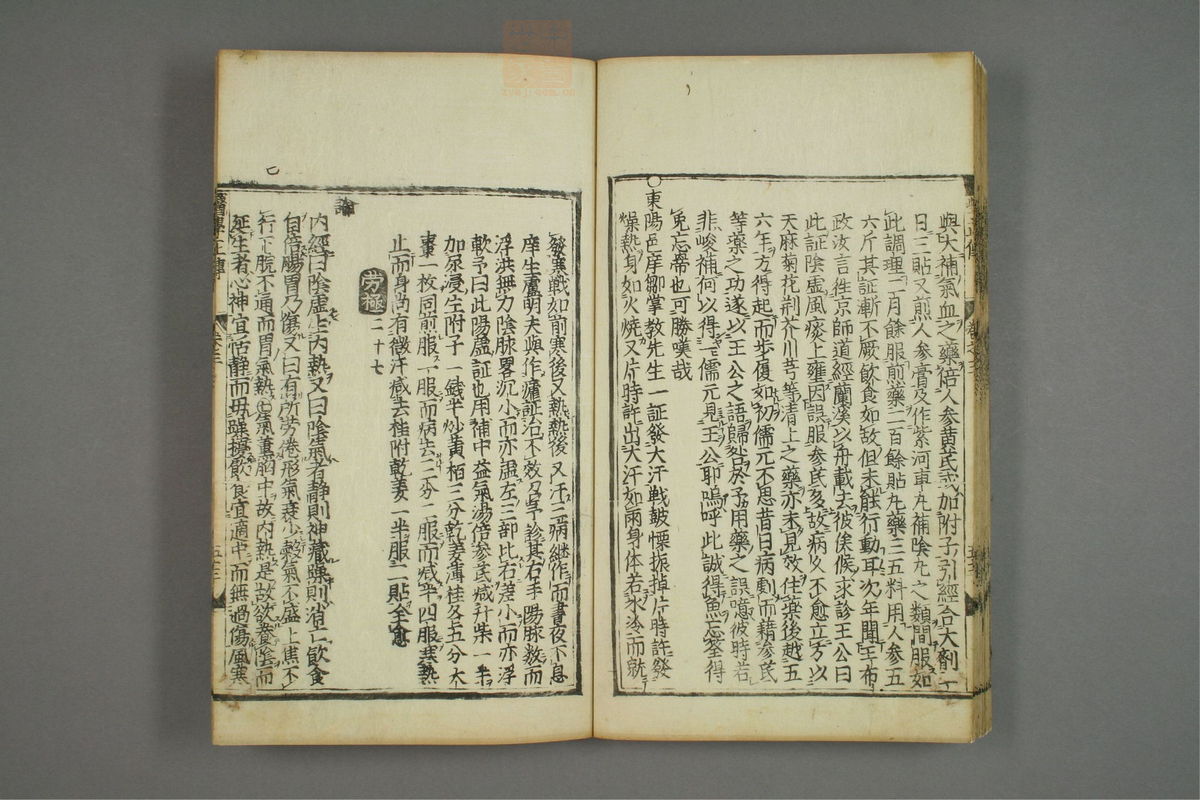 與大補氣血之藥倍人參黄芪或加附子引經合大劑一
日三貼又煎人參膏及作紫河車丸補陰丸之類間服如
此調理二月餘服煎藥二百餘貼丸藥三五料用人參五
六斤其証漸不厥飲食如故但未能行動耳次年聞王布
政汝言徃京師道經蘭溪以舟載去彼俟候求診王公曰
此証陰虛風痰上壅因誤服參芪多故病久不愈立方以
天麻菊花荆芥川芎等清上之藥亦未見效住藥後越五
六年方得起而步履如初儒元不思昔日病劇而藉參芪
等藥之功遂以王公之語歸咎於予用藥之誤噫彼時若
非峻補何以得一儒元見王公耶嗚呼此誠得魚忘筌得
兔忘蹄也可勝嘆哉
○東陽邑庠鄒掌教先生一証發大汗戦皷慄振掉片時許發
燥熱身如火燒又片時許出大汗如雨身体若氷冷而就
發寒戦如前寒後又熱熱後又汗三病継作而晝夜不息
庠生盧明夫與作瘧証治不效召予診其右手陽脉数而
浮洪無力陰脉畧沉小而亦虛左三部比右差小而亦浮
軟予曰此陽虛証也用補中益氣湯倍參芪减升柴一半
加尿浸生附子一錢半炒黄栢三分乾姜薄桂各五分大
棗一枚同煎服一服而病去二分二服而减半四服寒熱
止而身尚有微汗减去桂附乾姜一半服二貼全愈
労極 二十七
論
内經曰陰虛生内熱又曰陰氣者静則神藏躁則消亡飲食
自倍腸胃乃傷又曰有所労倦形氣衰少糓氣不盛上焦不
行下脘不通而胃氣熱熱氣薰胸中故内熱是故欲養陰而
延生者心神宜恬静而毋躁擾飲食宜適中而無過傷風寒